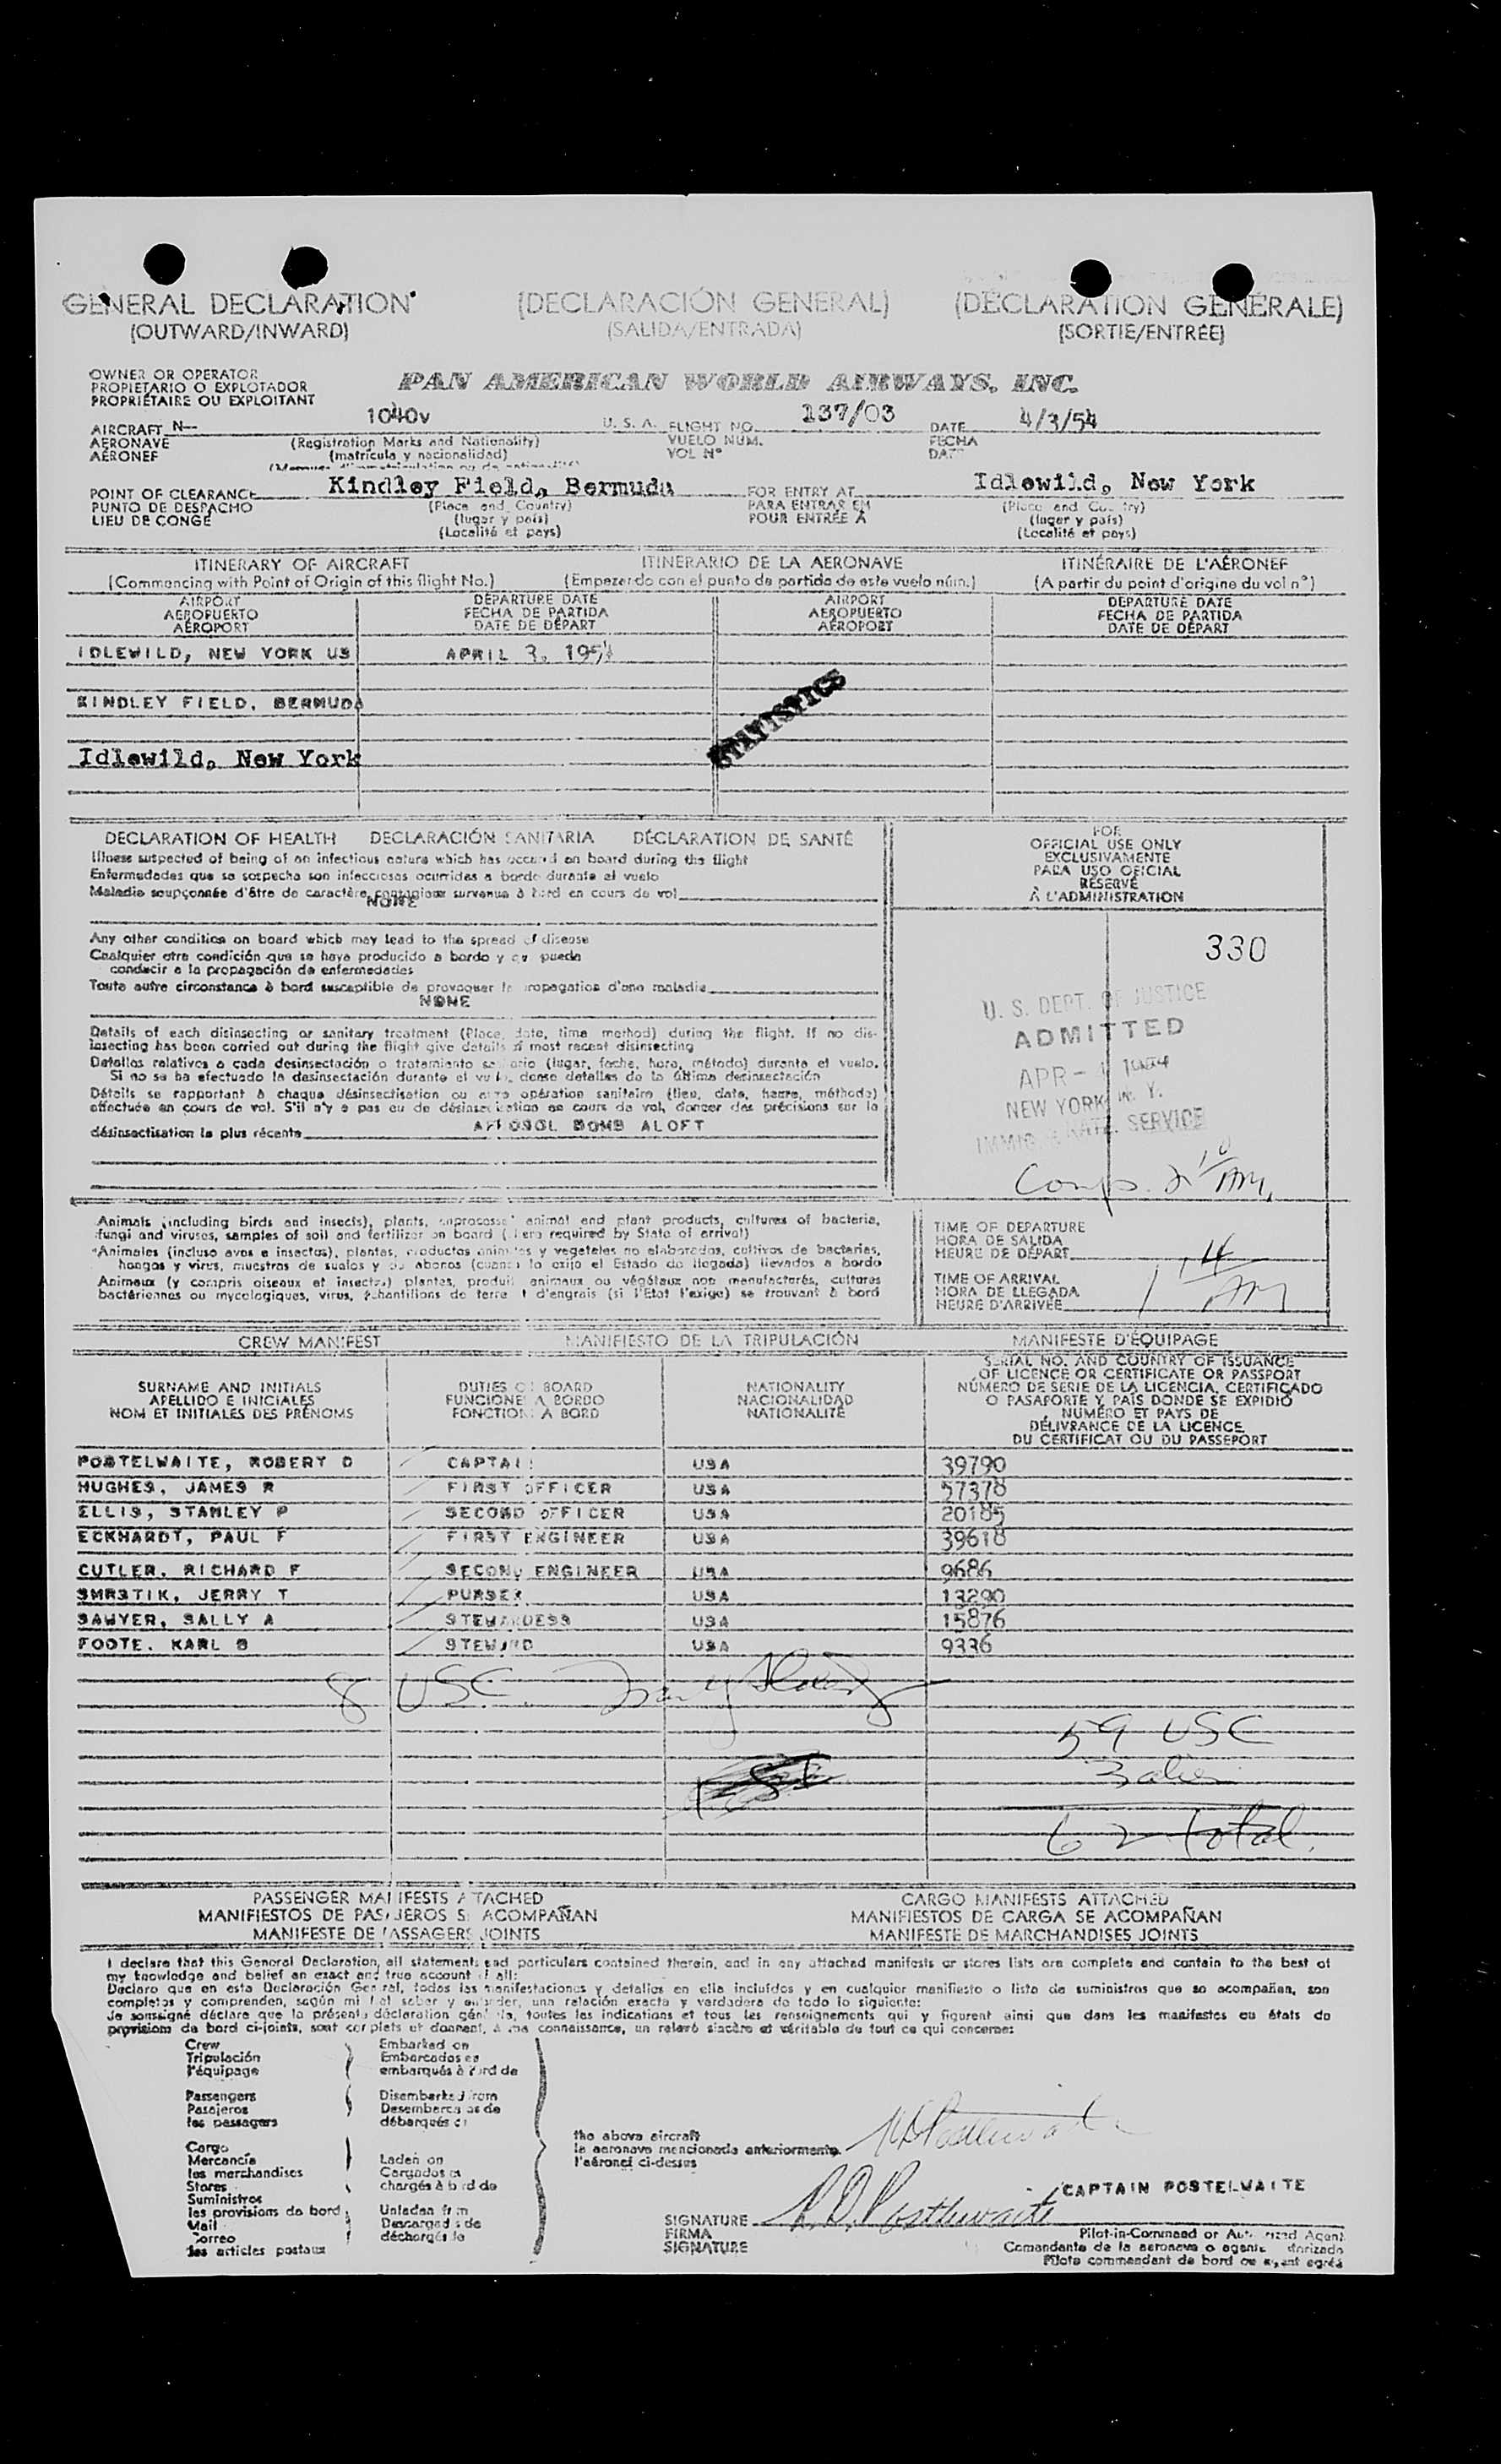 GENERAL DECLARATION (DECLARACIÓN GENERAL) (DÉCLARATION GÉNÉRALE)
(OUTWARD/INWARD) (SALIDA/ENTRADA) (SORTIE/ENTRÉE)
OWNER OR OPERATOR
PROPIETARIO O EXPLOTADOR
PROPRIÉTAIRE OU EXPLOITANT
PAN AMERICAN WORLD AIRWAYS, INC.
AIRCRAFT N— 1040v U. S. A. FLIGHT NO. 137/03 DATE 4/3/54
AERONAVE (Registration Marks and Nationality) VUELO NUM. FECHA
AÉRONEF (matrícula y nacionalidad) VOL Nº
POINT OF CLEARANCE Kindley Field, Bermuda FOR ENTRY AT Idlewild, New York
PUNTO DE DESPACHO (Place and Country) PARA ENTRAR EN (Place and Country)
LIEU DE CONGÉ (lugar y país) POUR ENTRÉE A (lugar y país)
(Localité et pays) (Localité et pays)
ITINERARY OF AIRCRAFT ITINERARIO DE LA AERONAVE ITINÉRAIRE DE L'AÉRONEF
(Commencing with Point of Origin of this flight No.) (Empezando con el punto de partida de este vuelo núm.) (A partir du point d'origine du vol nº)
AIRPORT DEPARTURE DATE AIRPORT DEPARTURE DATE
AEROPUERTO FECHA DE PARTIDA AEROPUERTO FECHA DE PARTIDA
AÉROPORT DATE DE DÉPART AÉROPORT DATE DE DÉPART
IDLEWILD, NEW YORK US APRIL 3, 1954
KINDLEY FIELD, BERMUDA
STATISTICS
Idlewild, New York
DECLARATION OF HEALTH DECLARACIÓN SANITARIA DÉCLARATION DE SANTÉ
Illness suspected of being of an infectious nature which has occured on board during the flight
Enfermedades que se sospecha son infecciosas ocurridas a bordo durante el vuelo
Maladie soupçonnée d'être de caractère contagieux survenue à bord en cours de vol
NONE
Any other condition on board which may lead to the spread of disease
Cualquier otra condición que se haya producido a bordo y que pueda
conducir a la propagación de enfermedades
Toute autre circonstance à bord susceptible de provoquer la propagation d'une maladie
NONE
Details of each disinsecting or sanitary treatment (Place, date, time method) during the flight. If no dis-
insecting has been carried out during the flight give details of most recent disinsecting
Detalles relativos a cada desinsectación o tratamiento sanitario (lugar, fecha, hora, método) durante el vuelo.
Si no se ha efectuado la desinsectación durante el vuelo, dense detalles de la última desinsectación
Détails se rapportant à chaque désinsectisation ou autre opération sanitaire (lieu, date, heure, méthode)
effectuée en cours de vol. S'il n'y a pas eu de désinsectisation en cours de vol, donner des précisions sur la
désinsectisation la plus récente AEROSOL BOMB ALOFT
FOR
OFFICIAL USE ONLY
EXCLUSIVAMENTE
PARA USO OFICIAL
RÉSERVÉ
À L'ADMINISTRATION
330
U. S. DEPT. OF JUSTICE
ADMITTED
APR - 1954
NEW YORK, N. Y.
IMMIG. & NATZ. SERVICE
Comp. 2 10 AM.
Animals (including birds and insects), plants, unprocessed animal and plant products, cultures of bacteria,
fungi and viruses, samples of soil and fertilizer on board (where required by State of arrival)
Animales (incluso aves e insectos), plantas, productos animales y vegetales no elaborados, cultivos de bacterias,
hongos y virus, muestras de suelos y de abonos (cuando lo exija el Estado de llegada) llevados a bordo
Animaux (y compris oiseaux et insectes) plantes, produits animaux ou végétaux non manufacturés, cultures
bactériennes ou mycologiques, virus, échantillons de terre et d'engrais (si l'Etat l'exige) se trouvant à bord
TIME OF DEPARTURE
HORA DE SALIDA
HEURE DE DÉPART
TIME OF ARRIVAL
HORA DE LLEGADA
HEURE D'ARRIVÉE
1 14 AM
CREW MANIFEST MANIFIESTO DE LA TRIPULACIÓN MANIFESTE D'ÉQUIPAGE
SURNAME AND INITIALS
APELLIDO E INICIALES
NOM ET INITIALES DES PRÉNOMS
DUTIES ON BOARD
FUNCIONES A BORDO
FONCTIONS A BORD
NATIONALITY
NACIONALIDAD
NATIONALITÉ
SERIAL NO. AND COUNTRY OF ISSUANCE
OF LICENCE OR CERTIFICATE OR PASSPORT
NÚMERO DE SERIE DE LA LICENCIA, CERTIFICADO
O PASAPORTE Y PAÍS DONDE SE EXPIDIÓ
NUMÉRO ET PAYS DE
DÉLIVRANCE DE LA LICENCE
DU CERTIFICAT OU DU PASSEPORT
POSTELWAITE, ROBERT D CAPTAIN USA 39790
HUGHES, JAMES R FIRST OFFICER USA 57378
ELLIS, STANLEY P SECOND OFFICER USA 20185
ECKHARDT, PAUL F FIRST ENGINEER USA 39618
CUTLER, RICHARD F SECOND ENGINEER USA 9686
SMRSTIK, JERRY T PURSER USA 13290
SAWYER, SALLY A STEWARDESS USA 15876
FOOTE, KARL B STEWARD USA 9336
8 USC.
59 USC
3 alien
62 total.
PASSENGER MANIFESTS ATTACHED CARGO MANIFESTS ATTACHED
MANIFIESTOS DE PASAJEROS SE ACOMPAÑAN MANIFIESTOS DE CARGA SE ACOMPAÑAN
MANIFESTE DE PASSAGERS JOINTS MANIFESTE DE MARCHANDISES JOINTS
I declare that this General Declaration, all statements and particulars contained therein, and in any attached manifests or stores lists are complete and contain to the best of
my knowledge and belief an exact and true account of all:
Declaro que en esta Declaración General, todas las manifestaciones y detalles en ella incluídos y en cualquier manifiesto o lista de suministros que se acompañan, son
completos y comprenden, según mi leal saber y entender, una relación exacta y verdadera de todo lo siguiente:
Je soussigné déclare que la présente déclaration générale, toutes les indications et tous les renseignements qui y figurent ainsi que dans les manifestes ou états de
provision de bord ci-joints, sont complets et donnent, à ma connaissance, un relevé sincère et véritable de tout ce qui concerne:
Crew Embarked on
Tripulación Embarcados en
l'équipage embarqués à bord de
Passengers Disembarked from
Pasajeros Desembarcados de
les passagers débarqués de
Cargo
Mercancía Laden on
les marchandises Cargados en
Stores chargés à bord de
Suministros
les provisions de bord Unladen from
Mail Descargados de
Correo déchargés de
les articles postaux
the above aircraft
la aeronave mencionada anteriormente
l'aéronef ci-dessus
CAPTAIN POSTELWAITE
SIGNATURE R. D. Postelwaite
FIRMA
SIGNATURE
Pilot-in-Command or Authorized Agent
Comandante de la aeronave o agente autorizado
Pilote commandant de bord ou agent agréé